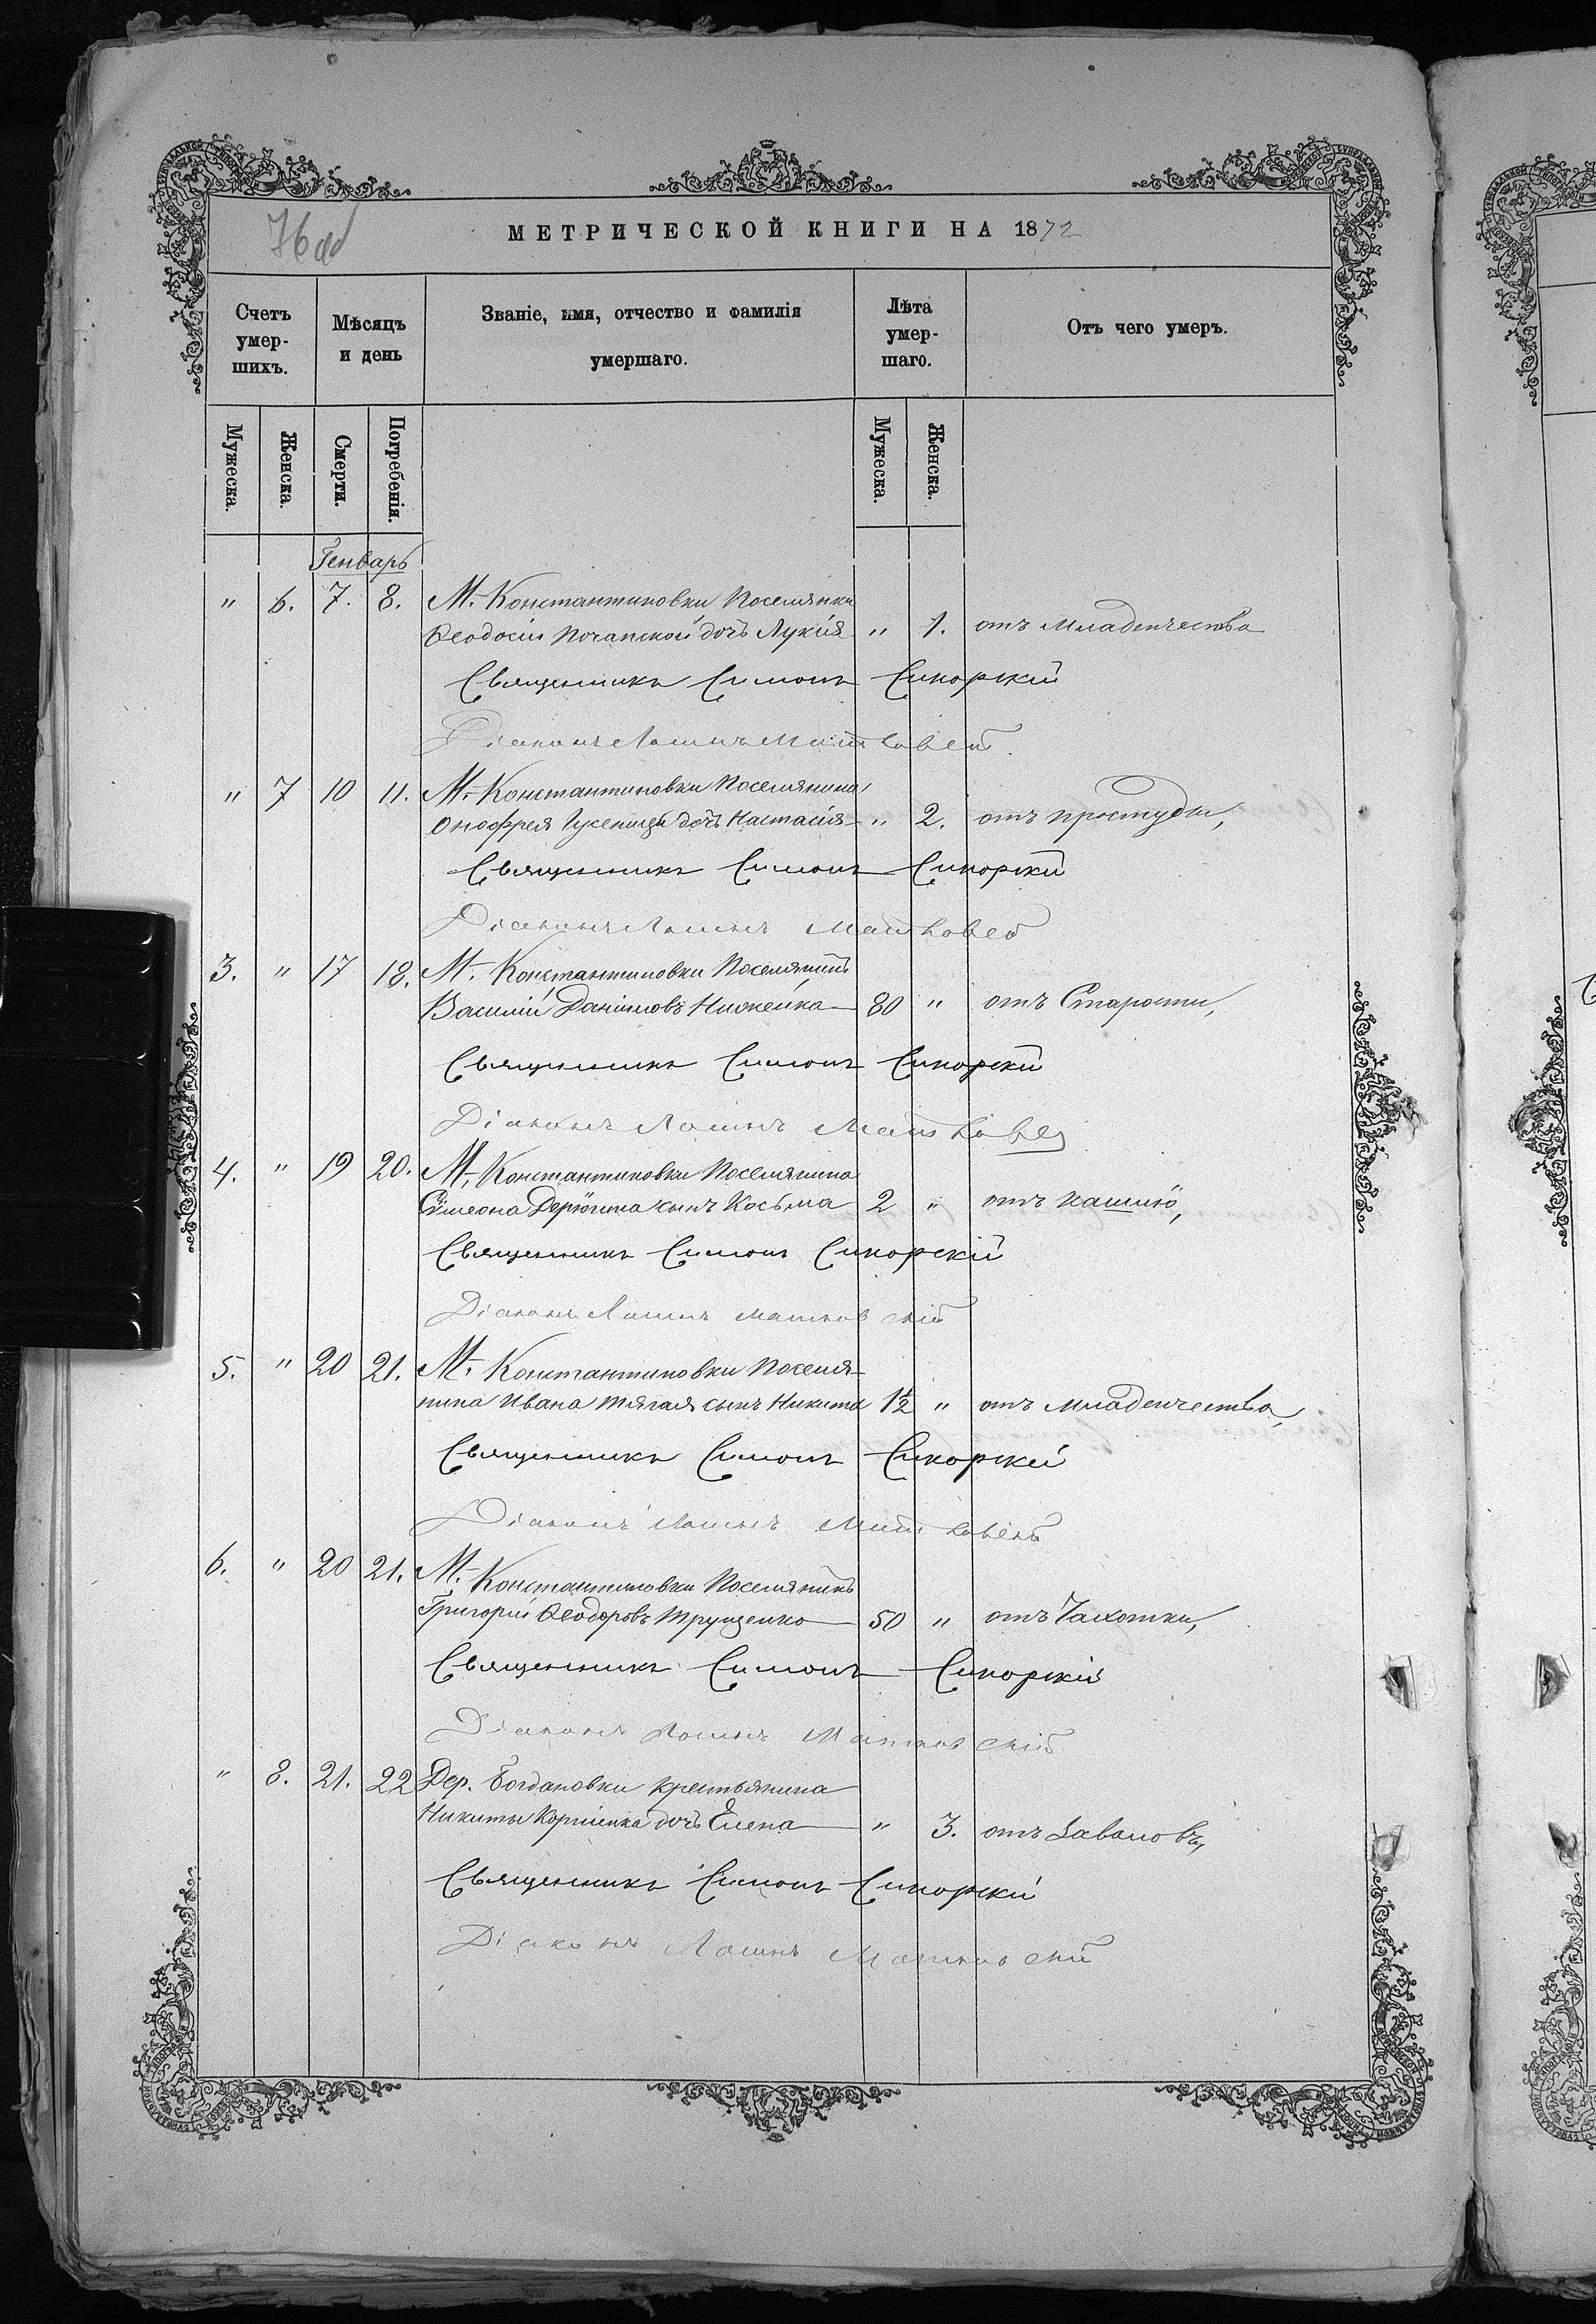 76 об
МЕТРИЧЕСКОЙ КНИГИ НА 1872
Счетъ умер-шихъ.
Мѣсяцъ и день
Званіе, имя, отчество и фамилія умершаго.
Лѣта умер-шаго.
Отъ чего умеръ.
Мужеска.
Женска.
Смерти.
Погребенія.
Мужеска.
Женска.
Генварь
" 6. 7. 8. М. Константиновки Поселянки
Ѳеодосіи Почапской дочь Лукія " 1. отъ младенчества
Священникъ Симонъ Сикорскій
Діаконъ Матковск
" 7 10 11. М. Константиновки Поселянина
Онофрея Гусеницы дочь Настасія " 2. отъ простуды,
Священникъ Симонъ Сикорскій
Діаконъ
3. " 17 18. М. Константиновки Поселянинъ
Василій Даніиловъ Нижейко 80 " отъ Старости,
Священникъ Симонъ Сикорскій
Діаконъ
4. " 19 20. М. Константиновки Поселянина
Сѵмеона Дерюгина сынъ Косьма 2 " отъ кашлю,
Священникъ Симонъ Сикорскій
Діаконъ Матковскій
5. " 20 21. М. Константиновки Поселя-
нина Ивана Тягая сынъ Никита 1½ " отъ младенчества,
Священникъ Симонъ Сикорскій
Діаконъ
6. " 20 21. М. Константиновки Поселянинъ
Григорій Ѳеодоровъ Трущенко 50 " отъ Чахотки,
Священникъ Симонъ Сикорскій
Діаконъ Матковскій
" 8. 21. 22 Дер. Богдановки крестьянина
Никиты Корніенка дочь Елена " 3. отъ Заваловъ,
Священникъ Симонъ Сикорскій
Діаконъ Матковскій